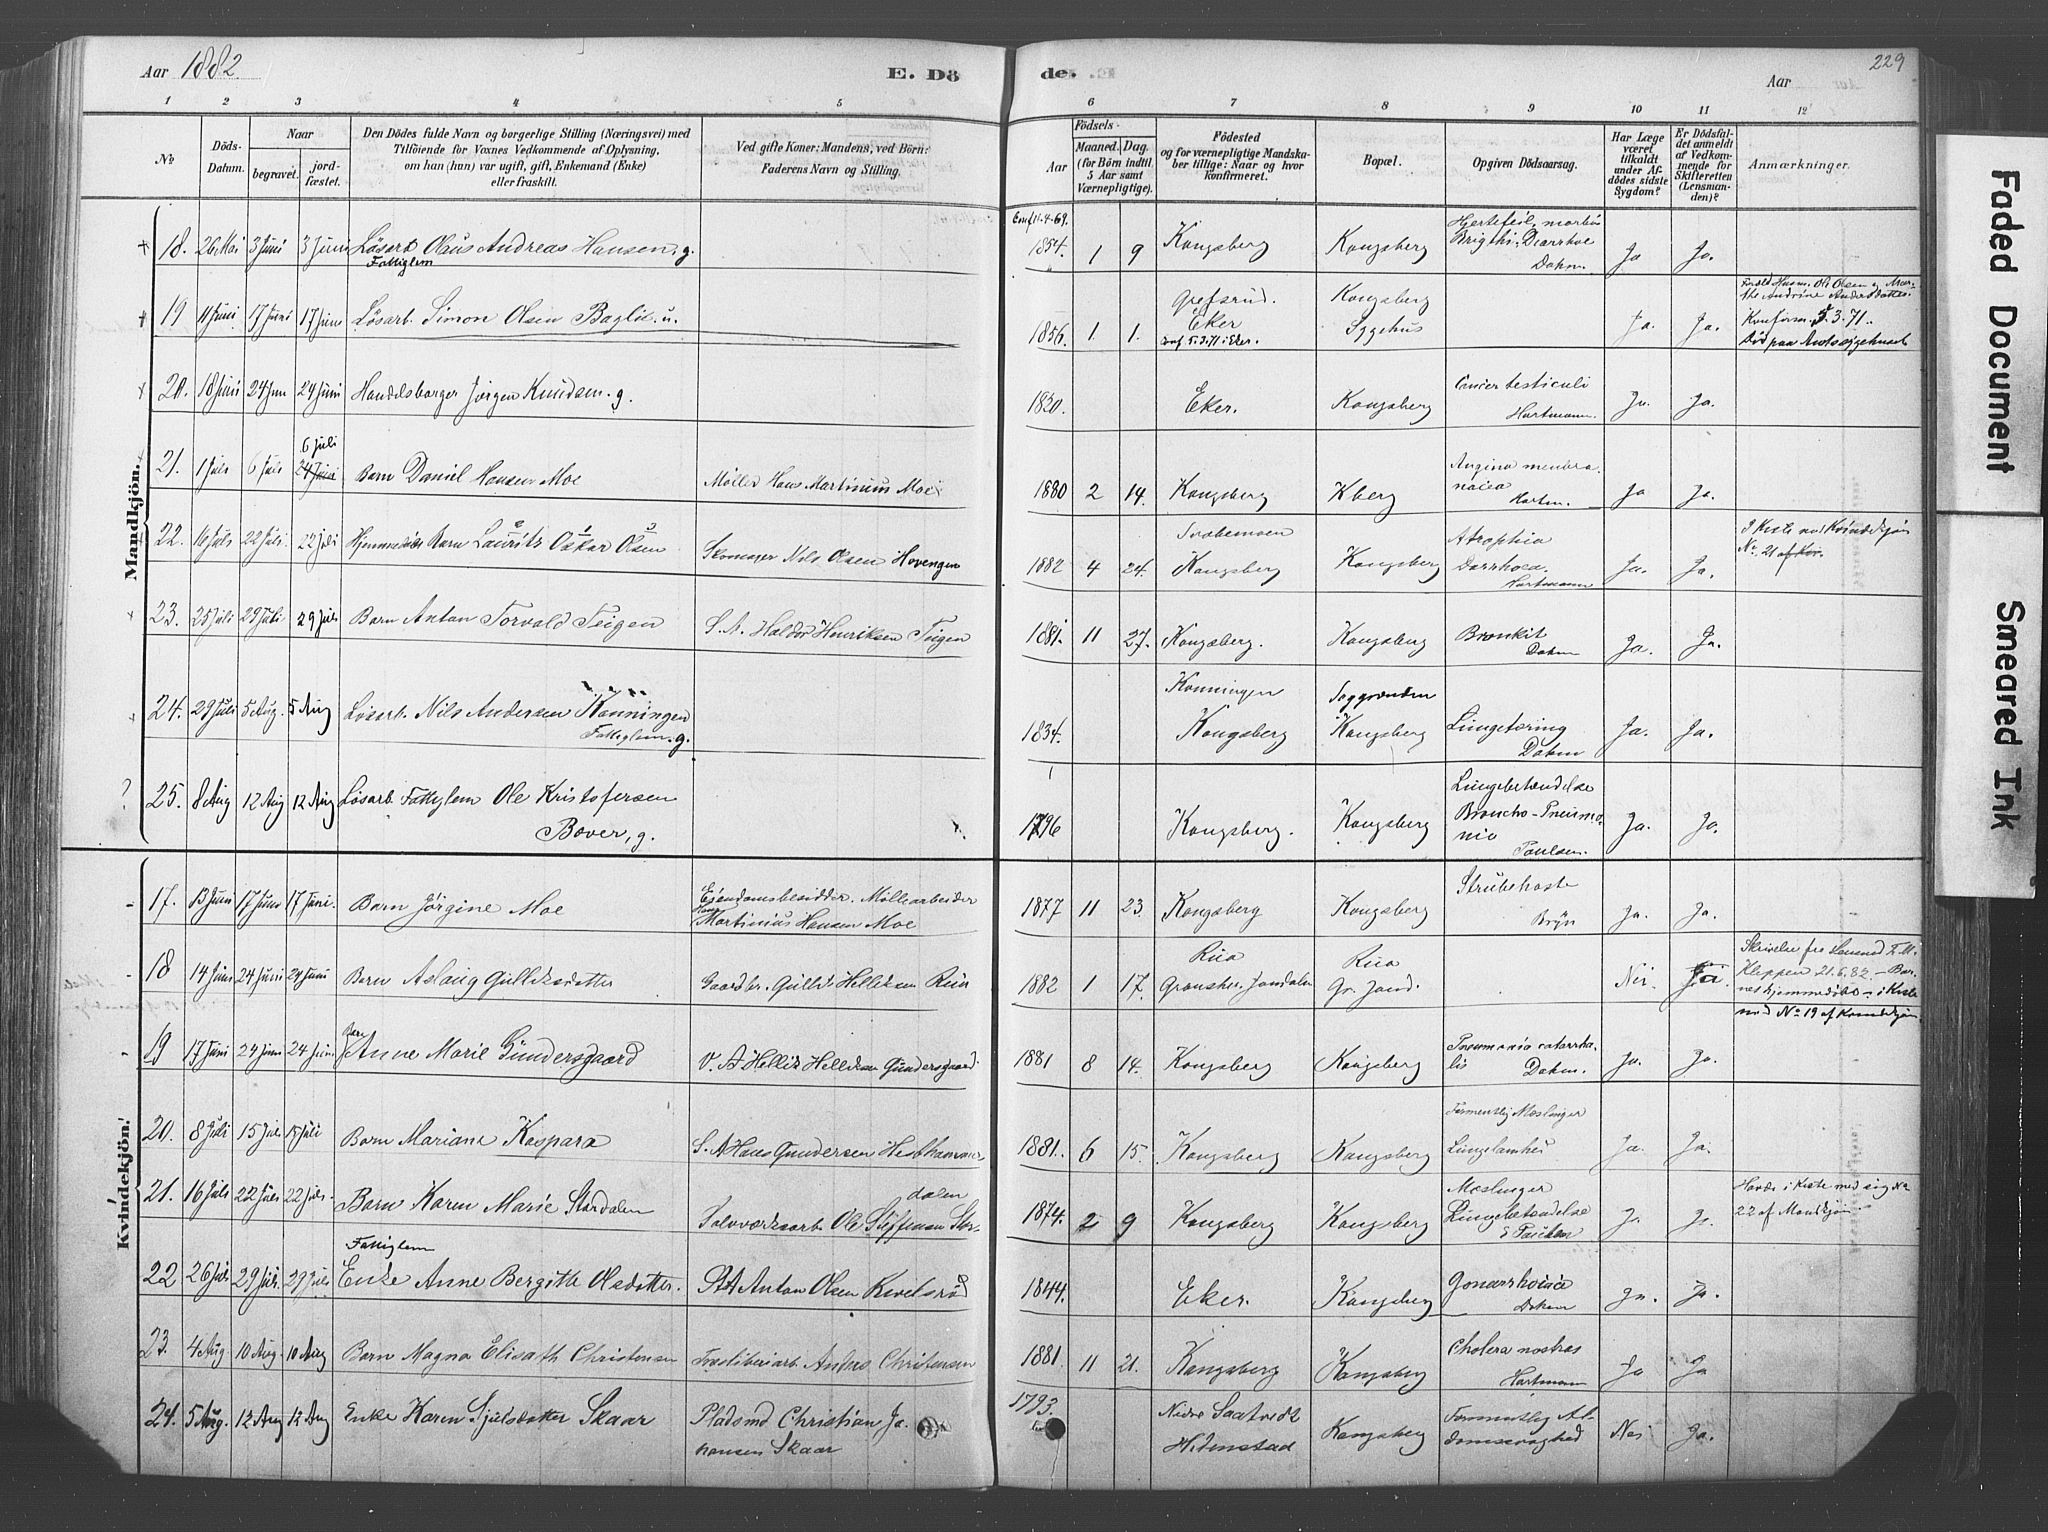 Aar 1882.
E. Dö
de.
Aar
229
1 2 3 4 5 6 7 8 9 10 11 12
No
Döds-
Datum.
Naar
begravet.
jord-
fæstet.
Den Dödes fulde Navn og borgerlige Stilling (Næringsvei) med
Tilföiende for Voxnes Vedkommende af Oplysning,
om han (hun) var ugift, gift, Enkemand (Enke)
eller fraskilt.
Ved gifte Koner: Mandens, ved Börn:
Faderens Navn og Stilling.
Födsels-
Aar
Maaned.
Dag.
(for Börn indtil
5 Aar samt
Værnepligtige).
Födested
og for værnepligtige Mandska-
ber tillige: Naar og hvor
konfirmeret.
Bopæl.
Opgiven Dödsaarsag.
Har Læge
været
tilkaldt
under Af-
dödes sidste
Sygdom?
Er Dödsfal-
det anmeldt
af Vedkom-
mende for
Skifteretten
(Lensman-
den)?
Anmærkninger.
Mandkjön.
18. 26 Mai 3 Juni 3 Juni Lösarb Olaus Andreas Hansen, g. Fattiglem
Conf 11-4-69.
1854. 1 9 Kongsberg Kongsberg Hjertefeil, morbus
Brigthi, Diarrhoe
Dahm Ja Ja.
19 11 Juni 17 Juni 17 Juni Lösarb. Simon Olsen Baglie. u.
1856. 1. 1. Grefsrud.
Eker
conf 5.3.71 i Eker.
Kongsberg
Sygehus Ja. Ja.
Foræld Husm. Ole Olsen og Mar-
the Andrine Andersdatter.
Konfirm. 5.3.71.
Död paa Amtssygehuset
20. 18 Juni 24 Jun 24 Juni Handelsborger Jörgen Knudsen. g.
1820. Eker. Kongsberg Cancer testiculi
Hartmann. Ja. Ja.
21. 1 Juli 6 Juli 6 Juli 24 Juni Barn Daniel Hansen Moe Møller Hans Martinius Moe
1880 2 14. Kongsberg Kberg Angina membra-
nacea
Hartm. Ja Ja.
22. 16 Juli 22 Juli. 22 Juli Hjemmedöbt Barn Lauritz Oskar Olsen Skomager Nils Olsen Hovengen
1882 4 24. Kongsberg Kongsberg Atrophia
Diarrhoea.
Hartmann Ja. Ja.
I Kiste med Kvindekjön
No. 21 af Kv.
23. 25 Juli 29 Juli 29 Juli Barn Anton Torvald Teigen S. A. Haldor Henriksen Teigen
1881. 11 27. Kongsberg. Kongsberg Bronkit
Dahm Ja. Ja.
24. 29 Juli 5 Aug. 5 Aug Lösarb. Nils Andersen Konningen
Fattiglem. g.
1834. Konningen
Kongsberg
Kongsberg Lungetæring
Dahm Ja. Ja.
? 25. 8 Aug 12 Aug 12 Aug Lösarb. Fattiglem Ole Kristofersen
Bover, g.
1796 Kongsberg. Kongsberg Lungebetændelse
Broncho-Pneumo-
nia
Paulsen. Ja. Ja.
Kvindekjön.
17. 13 Juni 17 Juni 17 Juni. Barn Jörgine Moe Eiendomsbesidder. Möllearbeider
Hans
Martinius Hansen Moe
1877 11 23. Kongsberg Kongsberg Strubehoste
Bryn Ja. Ja.
18 14 Juni 24 Juni 24 Juni Barn Aslaug Gulliksdatter Gaardbr. Gullik Helliksen Rua
1882 1 17. Rua
Gransher. Jondalen
Rua
Gr. Jond. Nei. Ja
Skrivelse fra Lensmd T. M.
Kleppen 21.6.82 - Bar-
net hjemmedöbt - i Kiste
med No 19 af Kvindekjön.
19 17 Juni 24 Juni 24 Juni Barn
Anne Marie Gundersgaard V. A. Hellik Helliksen Gundersgaard
1881 8 14. Kongsberg Kongsberg Pneumonia catarrha-
lis Dahm. Ja. Ja.
20. 8 Juli 15 Juli 15 Juli Barn Mariane Kaspara S. A Hans Gundersen Hesthammer
1881. 6 15. Kongsberg Kongsberg Formentlig Meslinger
Ja. Ja.
21. 16 Juli 22 Juli 22 Juli. Barn Karen Marie Stordalen Sølvværksarb. Ole Steffensen Stor-
dalen
1874. 2 9 Kongsberg Kongsberg Meslinger
Lungebetændelse
Ja Ja.
Havde i Kiste med sig No
22 af Mandkjön.
22 26 Juli 29 Juli. 29 Juli Fattiglem
Enke Anne Bergitte Olsdatter. Anton Olsen Kvelsröd
1844. Eker. Kongsberg Gonorrhoica
Dahm Ja. Ja.
23. 4 Aug. 10 Aug. 10 Aug Barn Magna Elisabeth Christensen Træsliberiarb. Anders Christensen
1881. 11 21. Kongsberg Kongsberg Cholera nostras
Hartmann Ja Ja
24. 5 Aug. 12 Aug 12 Aug Enke Karen Gjulsdatter Skaar Pladsmd Christian Jo-
hansen Skaar
1793. Nedre Saatvedt
Hedenstad Kongsberg Formentlig Al-
domssvaghed Nei Ja.
Faded Document
Smeared Ink